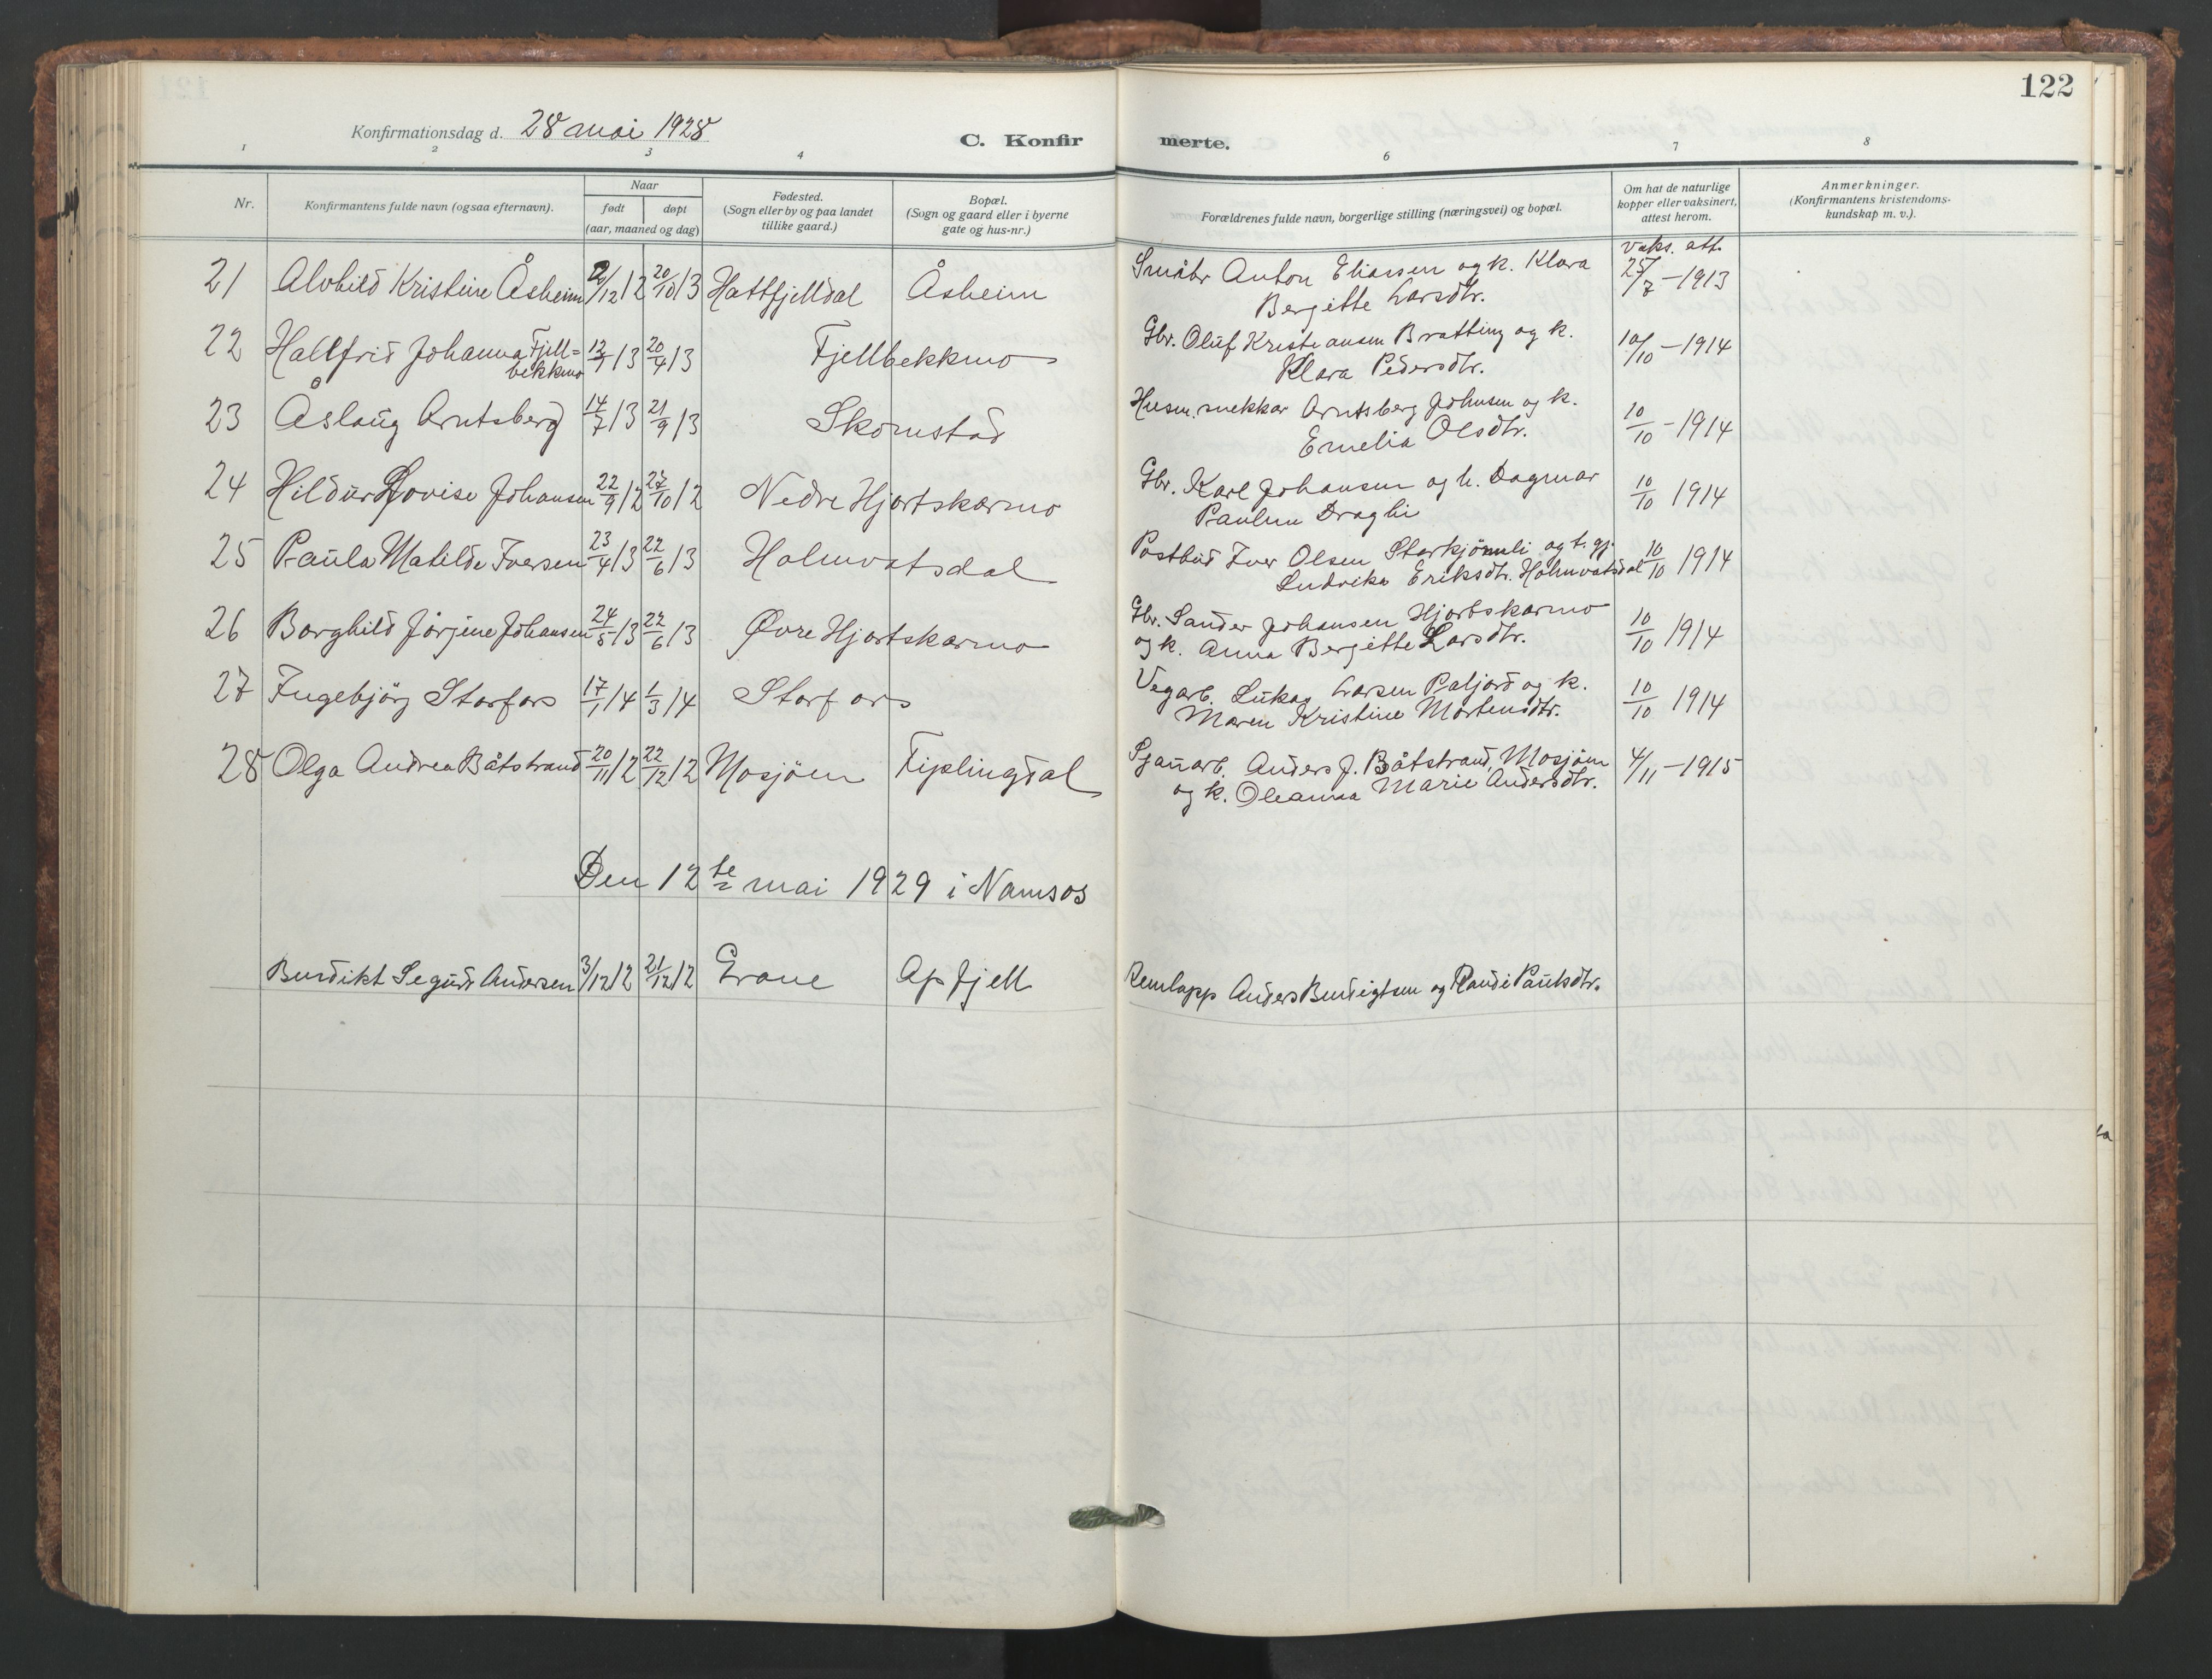 122
Konfirmationsdag d. 28 mai 1928
C. Konfir merte.
1 2 3 4 6 7 8
Nr.
Konfirmantens fulde navn (ogsaa efternavn).
Naar
født døpt
(aar, maaned og dag)
Fødested.
(Sogn eller by og paa landet
tillike gaard.)
Bopæl.
(Sogn og gaard eller i byerne
gate og hus-nr.)
Forældrenes fulde navn, borgerlige stilling (næringsvei) og bopæl.
Om hat de naturlige
kopper eller vaksinert,
attest herom.
Anmerkninger.
(Konfirmantens kristendoms-
kundskap m. v.).
vaks. att.
21 Alvhild Kristine Åsheim /12 12 20/10 13 Hattfjelldal Åsheim Småbr Anton Eliassen og k. Klara 25/7 - 1913
Bergitte Larsdtr.
22 Hallfrid Johanna Fjell= 13 20/4 13 Fjellbekkmo Gbr. Oluf Kristiansen Bratting og k. 10/10 - 1914
bekkmo Klara Pedersdtr.
23 Åslaug Arntsberg 14/7 13 21/9 13 Skomstad Husm. snekkar Arntsberg Johnsen og k. 10/10 - 1914
Emelia Olsdtr.
24 Hildur Lovise Johansen 22/9 12 27/10 12 Nedre Hjortskarmo Gbr. Karl Johansen og h. Dagmar 10/10 1914
Pauline Dragli
25 Paula Matilde Iversen 23/4 13 22/6 13 Holmvatsdal Postbud Iver Olsen Storkjønnli og t. gj. 10/10 1914
Ludvika Eriksdtr. Holmvatsdal
26 Borghild Jørgine Johansen 24/5 13 22/6 13 Øvre Hjortskarmo Gbr. Sander Johansen Hjortskarmo 10/10 1914
og k. Anna Bergitte Larsdtr.
27 Ingebjørg Storfors 17/1 14 1/3 14 Storfors Vegarb. Lukas Larsen Paljord og k. 10/10 1914
Maren Kristine Mortensdtr.
28 Olga Andrea Båtstrand 20/11 12 22/12 12 Mosjøen Fiplingdal Sjauarb. Anders J. Båtstrand, Mosjøen 4/11 - 1915
og k. Oleanna Marie Andersdtr.
Den 12te mai 1929 i Namsos
Bendikt Segurd Andersen 3/12 12 21/12 12 Grane Apfjell Renlapp Anders Bendigtsen og Randi Paulsdtr.